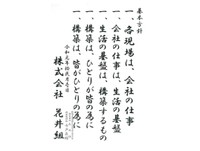 基本方針
一、各現場は、会社の仕事
一、会社の仕事は、生活の基盤
一、生活の基盤は、構築するもの
一、構築は、ひとりが皆の為に
一、構築は、皆がひとりの為に
株式会社 花井組